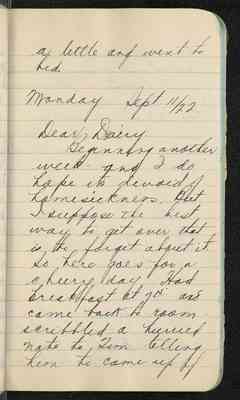 a little and went to
bed.
Monday Sept 11/22
Dear Dairy
Beginning another
week and I do
hope its devoid of
homesickness. But
I suppose the best
way to get over that
is to forget about it
so here goes for a
cheery day. Had
breakfast at 7 and
came back to room
scribbled a hurried
note to Tom telling
him to come up if